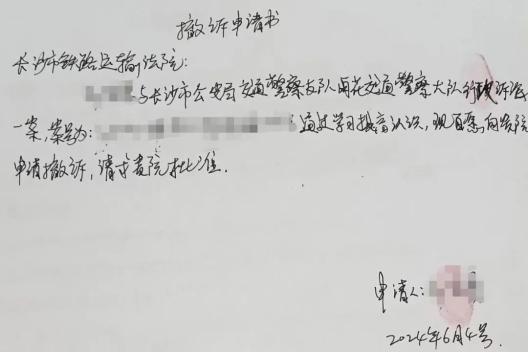 撤诉申请书
长沙市铁路运输法院:
与长沙市公安局交通警察支队雨花交通警察大队行政诉讼
一案,案号为: 通过学习提高认识,现自愿向贵院
申请撤诉,请求贵院批准.
申请人:
2024年6月4号.